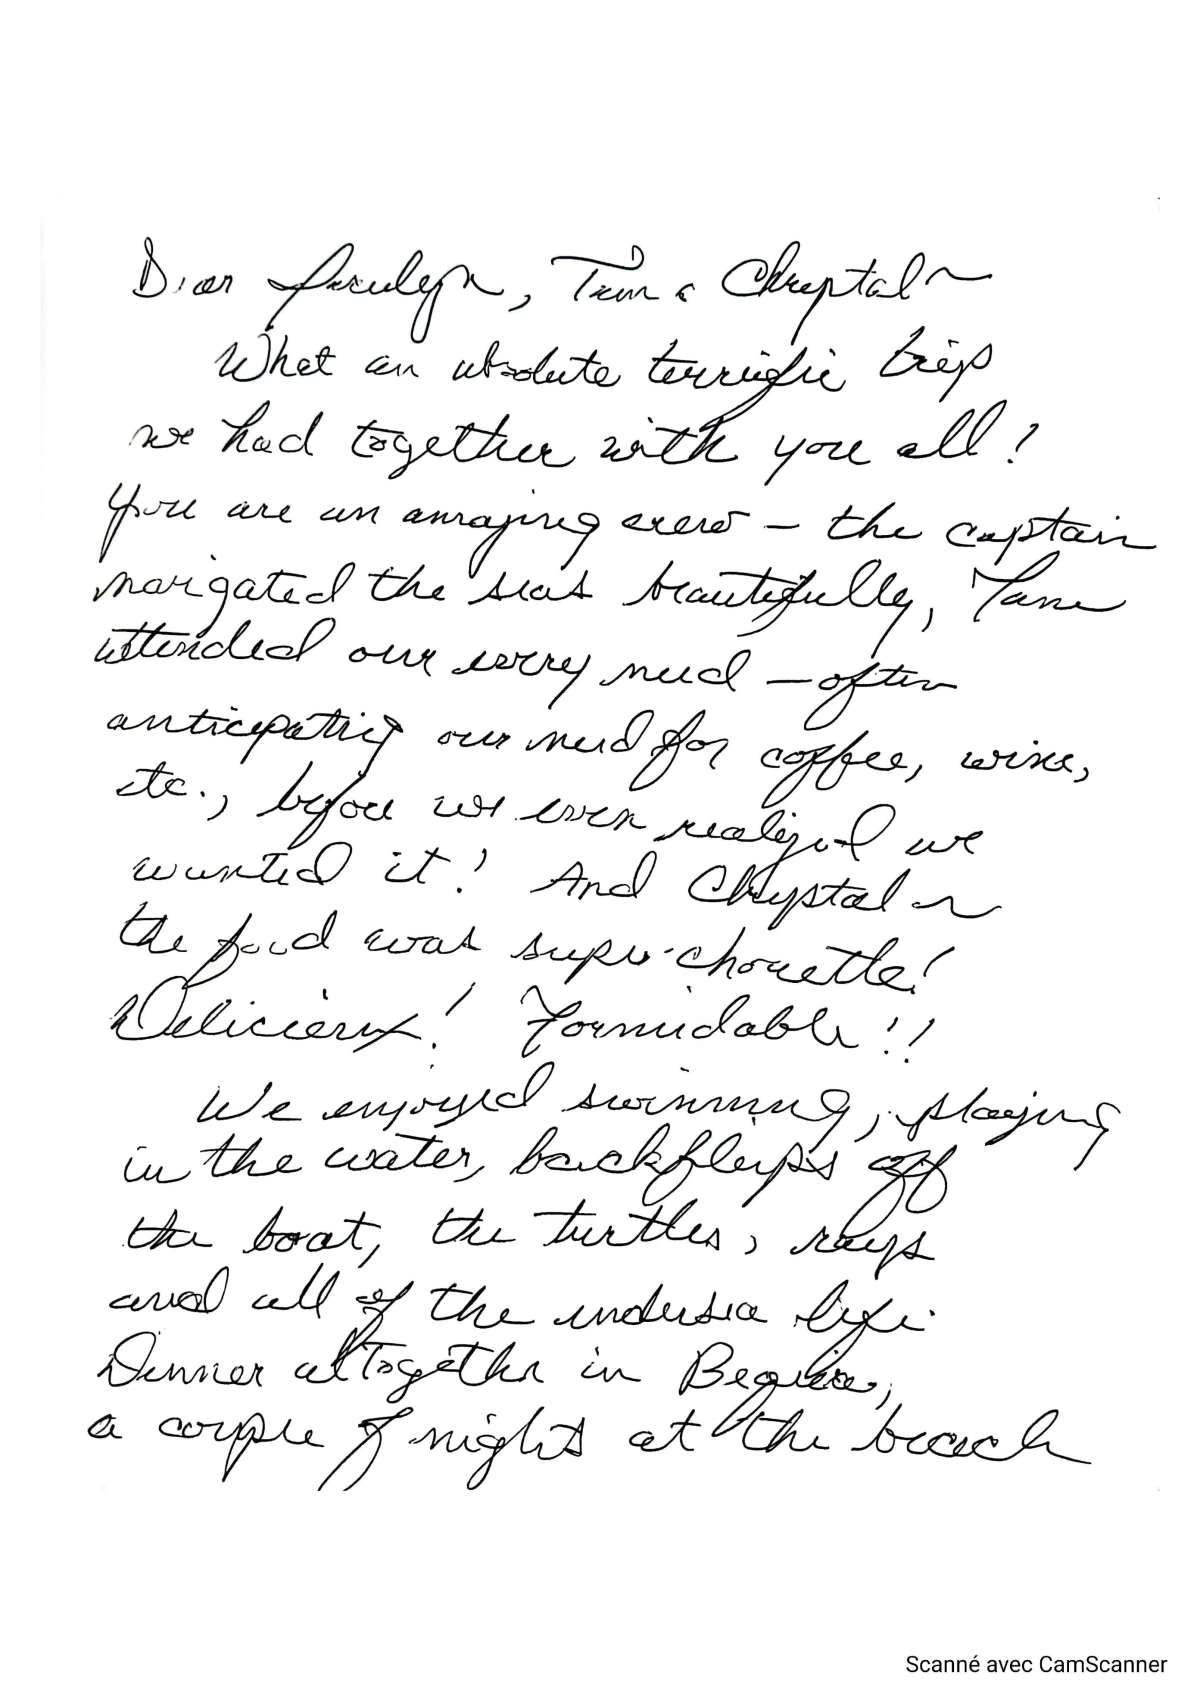 Dear, & Chrystal ~
What an absolute terrific trip
we had together with you all!
You are an amazing crew – the captain
navigated the seas beautifully,
attended our every need – often
anticipating our need for coffee, wine,
etc., before we even realized we
wanted it! And Chrystal ~
the food was super-chouette!
Délicieux! Formidable!!
We enjoyed swimming, playing
in the water, backflips off
the boat, the turtles, rays
and all of the undersea life.
Dinner altogether in Bequia,
a couple of nights at the beach
Scanné avec CamScanner